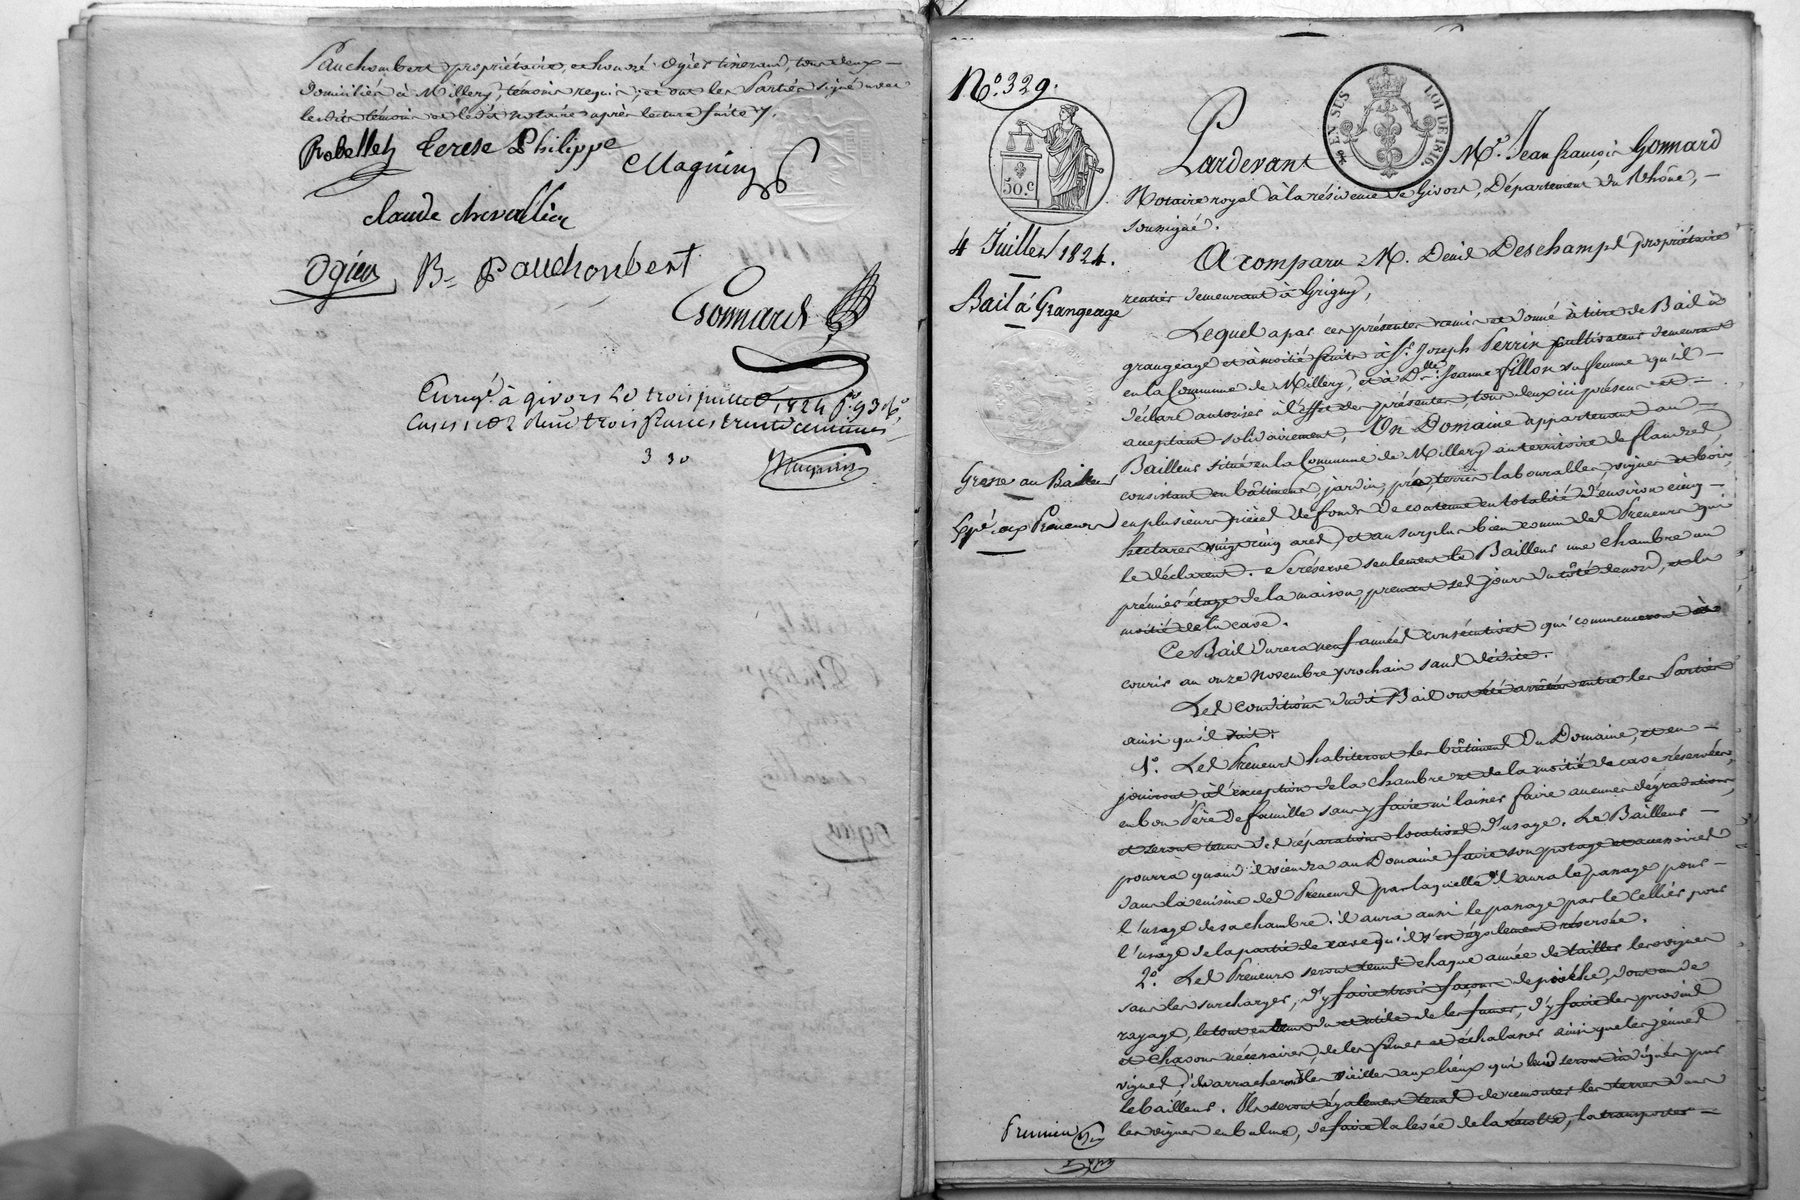 Pauchombert propriétaire, et honoré Ogier tisserand, tous deux
domiciliés à Millery, témoins requis; et ont les Parties signé avec
lesdits témoins et ledit notaire après lecture faite.
Robellet terese Philippe
Magnin
claude chevallier
Ogier B= Pauchonbert
Gonnard
Enreg.é à givors le trois juillet 1824 f.o 93 
Cases 1 et 2 reçu trois francs trente centimes
3 30
N.o 329.
EN SUS LOI DE 1816
50.c
4 Juillet 1824.
Bail à Grangeage
Grosse au Bailleur
Exp.é aux Preneurs
Pardevant M.e Jean françois Gonnard
Notaire royal à la résidence de Givors, Département du Rhône,
soussigné.
A comparu M. Denis Deschamps propriétaire
rentier demeurant à Grigny,
Lequel a par ces présentes remis et donné à titre de Bail à
grangeage et à moitié fruits à S.r Joseph Perrin cultivateur demeurant
en la Commune de Millery, et à D.lle Jeanne fillon sa femme qu'il
déclare autoriser à l'effet des présentes, tous deux ici présens et
acceptant solidairement, Un Domaine appartenant au
Bailleur situé en la Commune de Millery au territoire de flandres,
consistant en bâtimens, jardin, prés, terres labourables, vignes et bois,
en plusieurs pièces de fonds de contenue en totalité d'environ cinq
hectares vingt cinq ares, et au surplus bien connu des Preneurs qui
le déclarent. Se réserve seulement le Bailleur une chambre au
prémier étage de la maison, prenant ses jours du côté de nord, et la
moitié de la cave.
Ce Bail durera neuf années consécutives qui commenceront à
courir au onze Novembre prochain sans dédite.
Les conditions dudit Bail ont été arrêtées entre les Parties
ainsi qu'il suit:
1.o Les Preneurs habiteront les bâtimens du Domaine, et en
jouiront à l'exception de la chambre et de la moitié de cave réservées,
en bon Père de famille sans y faire ni laisser faire aucunes dégradations,
et seront tenus des réparations locatives d'usage. Le Bailleur
pourra quand il viendra au Domaine faire son potage et accessoires
dans la cuisine des Preneurs par laquelle il aura le passage pour
l'usage de sa chambre. il aura aussi le passage par le Cellier pour
l'usage de la partie de cave qu'il s'est également réservée.
2.o Les Preneurs seront tenus chaque année de tailler les vignes
sans les surcharger, d'y faire trois façons de pioche, dont une de
rayage, le tout en tems dû et utile de les fumer, d'y faire les provins
et chapons nécessaires, de les fumer et échalasser ainsi que les jeunes
vignes; ils arracheront les vieilles aux lieux qui leur seront désignés par
le bailleur. Ils seront également tenus de remonter les terres dans
les vignes en balme, de faire la levée de la récolte, la transporter